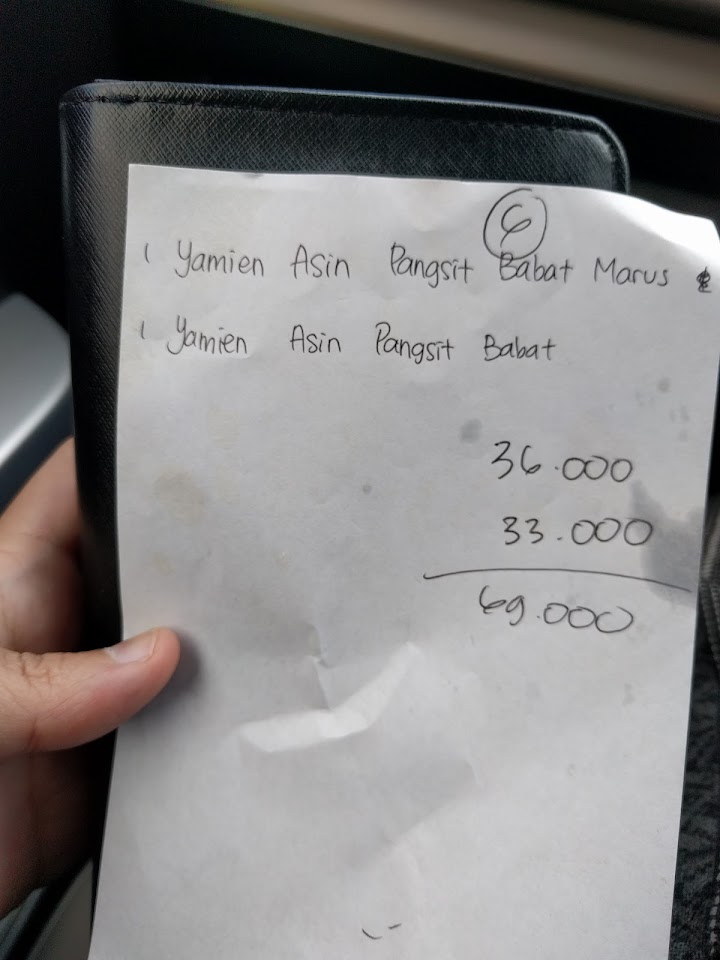 6
1 Yamien Asin Pangsit Babat Marus
1 Yamien Asin Pangsit Babat
36.000
33.000
69.000